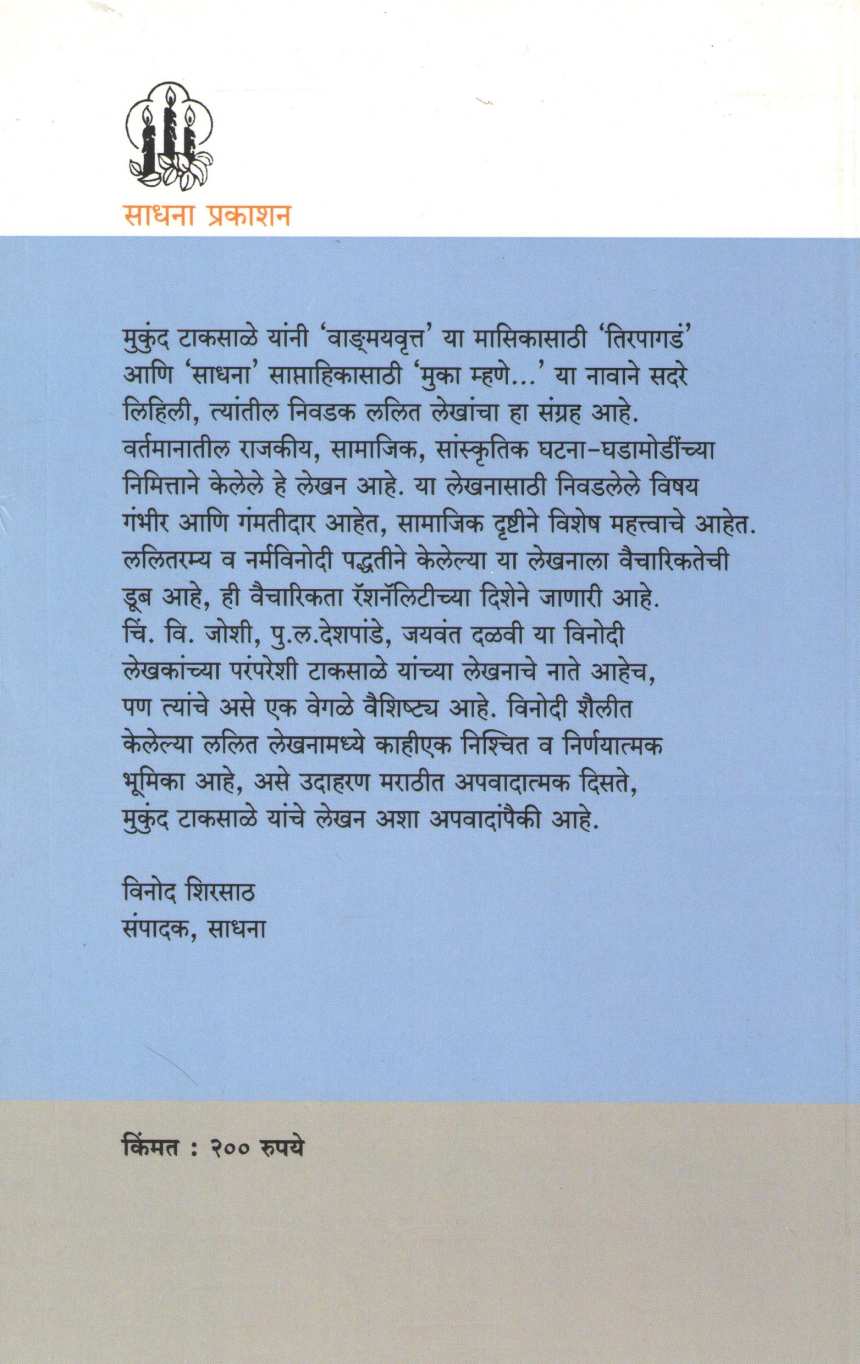 साधना प्रकाशन
मुकुंद टाकसाळे यांनी ‘वाङ्मयवृत्त’ या मासिकासाठी ‘तिरपागडं’
आणि ‘साधना’ साप्ताहिकासाठी ‘मुका म्हणे...’ या नावाने सदरे
लिहिली, त्यांतील निवडक ललित लेखांचा हा संग्रह आहे.
वर्तमानातील राजकीय, सामाजिक, सांस्कृतिक घटना-घडामोडींच्या
निमित्ताने केलेले हे लेखन आहे. या लेखनासाठी निवडलेले विषय
गंभीर आणि गंमतीदार आहेत, सामाजिक दृष्टीने विशेष महत्त्वाचे आहेत.
ललितरम्य व नर्मविनोदी पद्धतीने केलेल्या या लेखनाला वैचारिकतेची
डूब आहे, ही वैचारिकता रॅशनॅलिटीच्या दिशेने जाणारी आहे.
चिं. वि. जोशी, पु.ल.देशपांडे, जयवंत दळवी या विनोदी
लेखकांच्या परंपरेशी टाकसाळे यांच्या लेखनाचे नाते आहेच,
पण त्यांचे असे एक वेगळे वैशिष्ट्य आहे. विनोदी शैलीत
केलेल्या ललित लेखनामध्ये काहीएक निश्चित व निर्णयात्मक
भूमिका आहे, असे उदाहरण मराठीत अपवादात्मक दिसते,
मुकुंद टाकसाळे यांचे लेखन अशा अपवादांपैकी आहे.
विनोद शिरसाठ
संपादक, साधना
किंमत : २०० रुपये